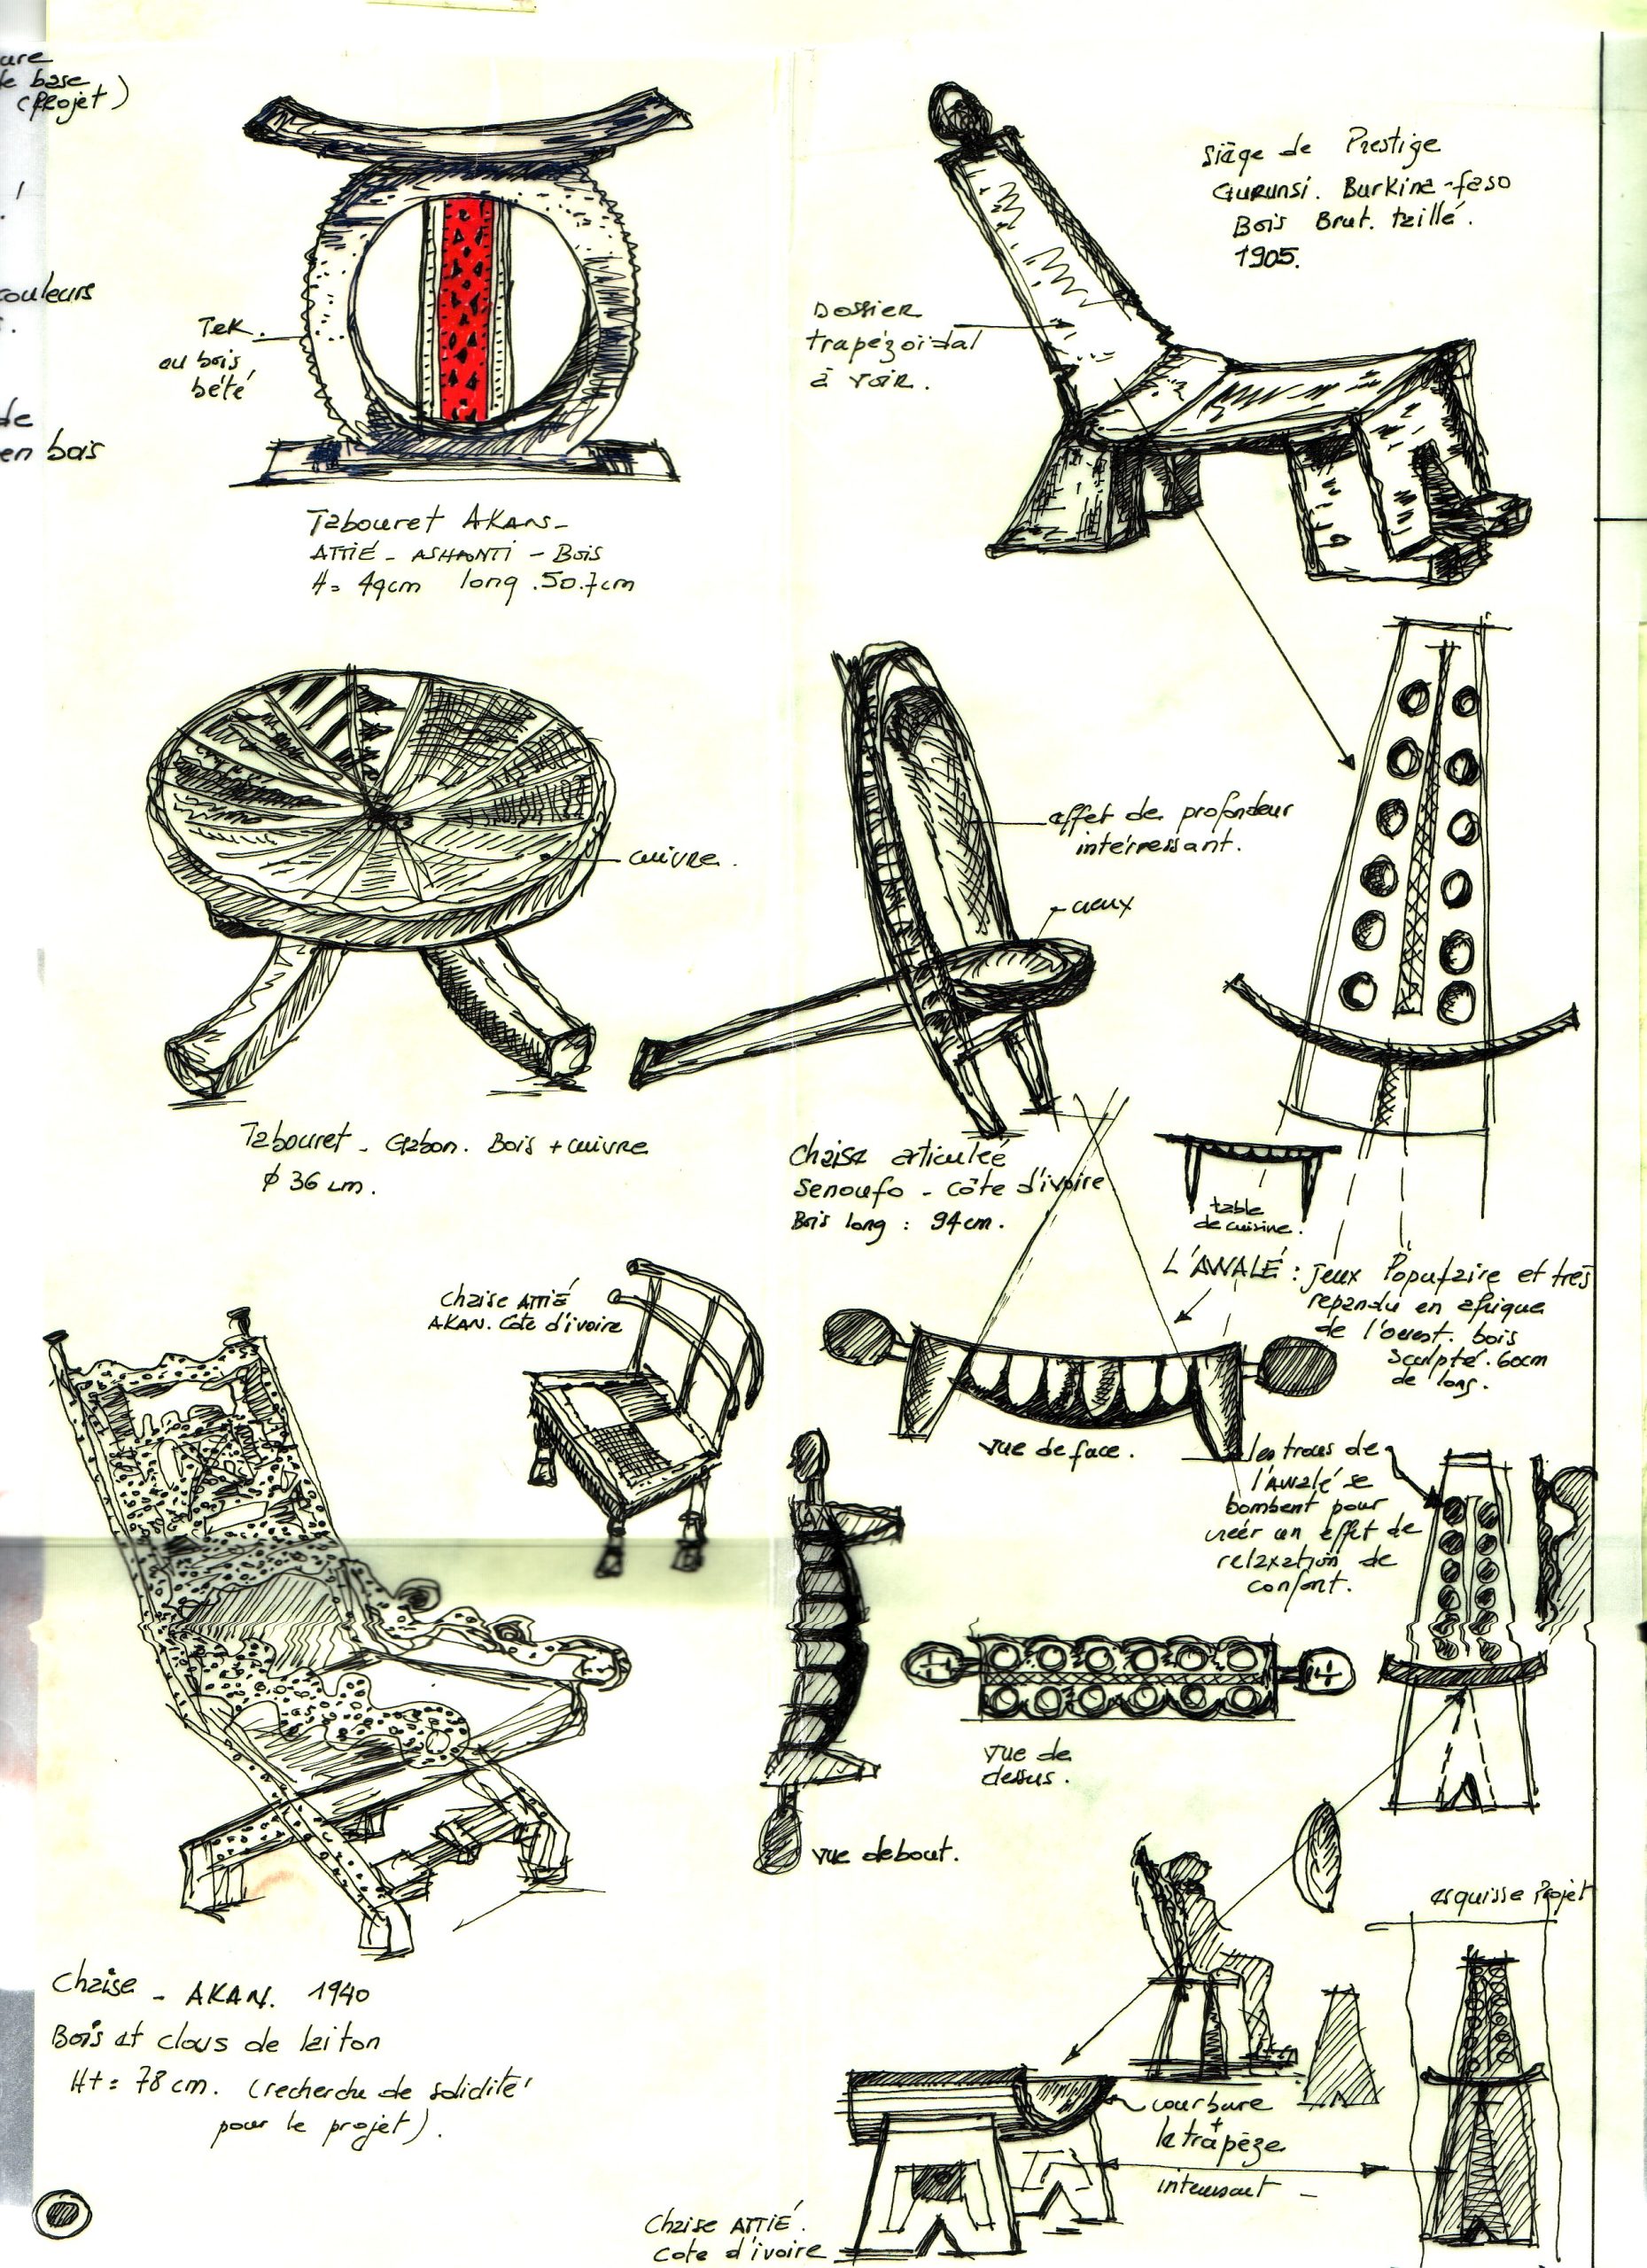 ure
de base
(Projet)
couleurs
de
en bois
Tek
ou bois
bété
Tabouret AKans-
ATTIÉ - ASHANTI - Bois
H= 49cm long .50.7cm
Siège de Prestige
Gurunsi. Burkina-faso
Bois Brut. taillé.
1905.
Dossier
trapézoïdal
à voir.
cuivre.
Tabouret - Gabon. Bois + cuivre
ϕ 36 cm.
effet de profondeur
intérressant.
creux
Chaise articuleé
Senoufo - Côte d'ivoire
Bois long : 94cm.
table
de cuisine.
L'AWALÉ : jeux Populaire et très
repandu en afrique
de l'ouest. bois
Sculpté. 60cm
de long.
Chaise ATTIÉ
AKAN. Cote d'ivoire
vue de face.
les trous de
l'AWAlé se
bombent pour
créer un effet de
relaxation de
confort.
vue de
dessus.
vue debout.
esquisse Projet
Chaise - AKAN. 1940
Bois et clous de laiton
Ht= 78 cm. (recherche de solidité
pour le projet).
courbure
+
le trapèze
interessant -
Chaise ATTIÉ.
Cote d'ivoire